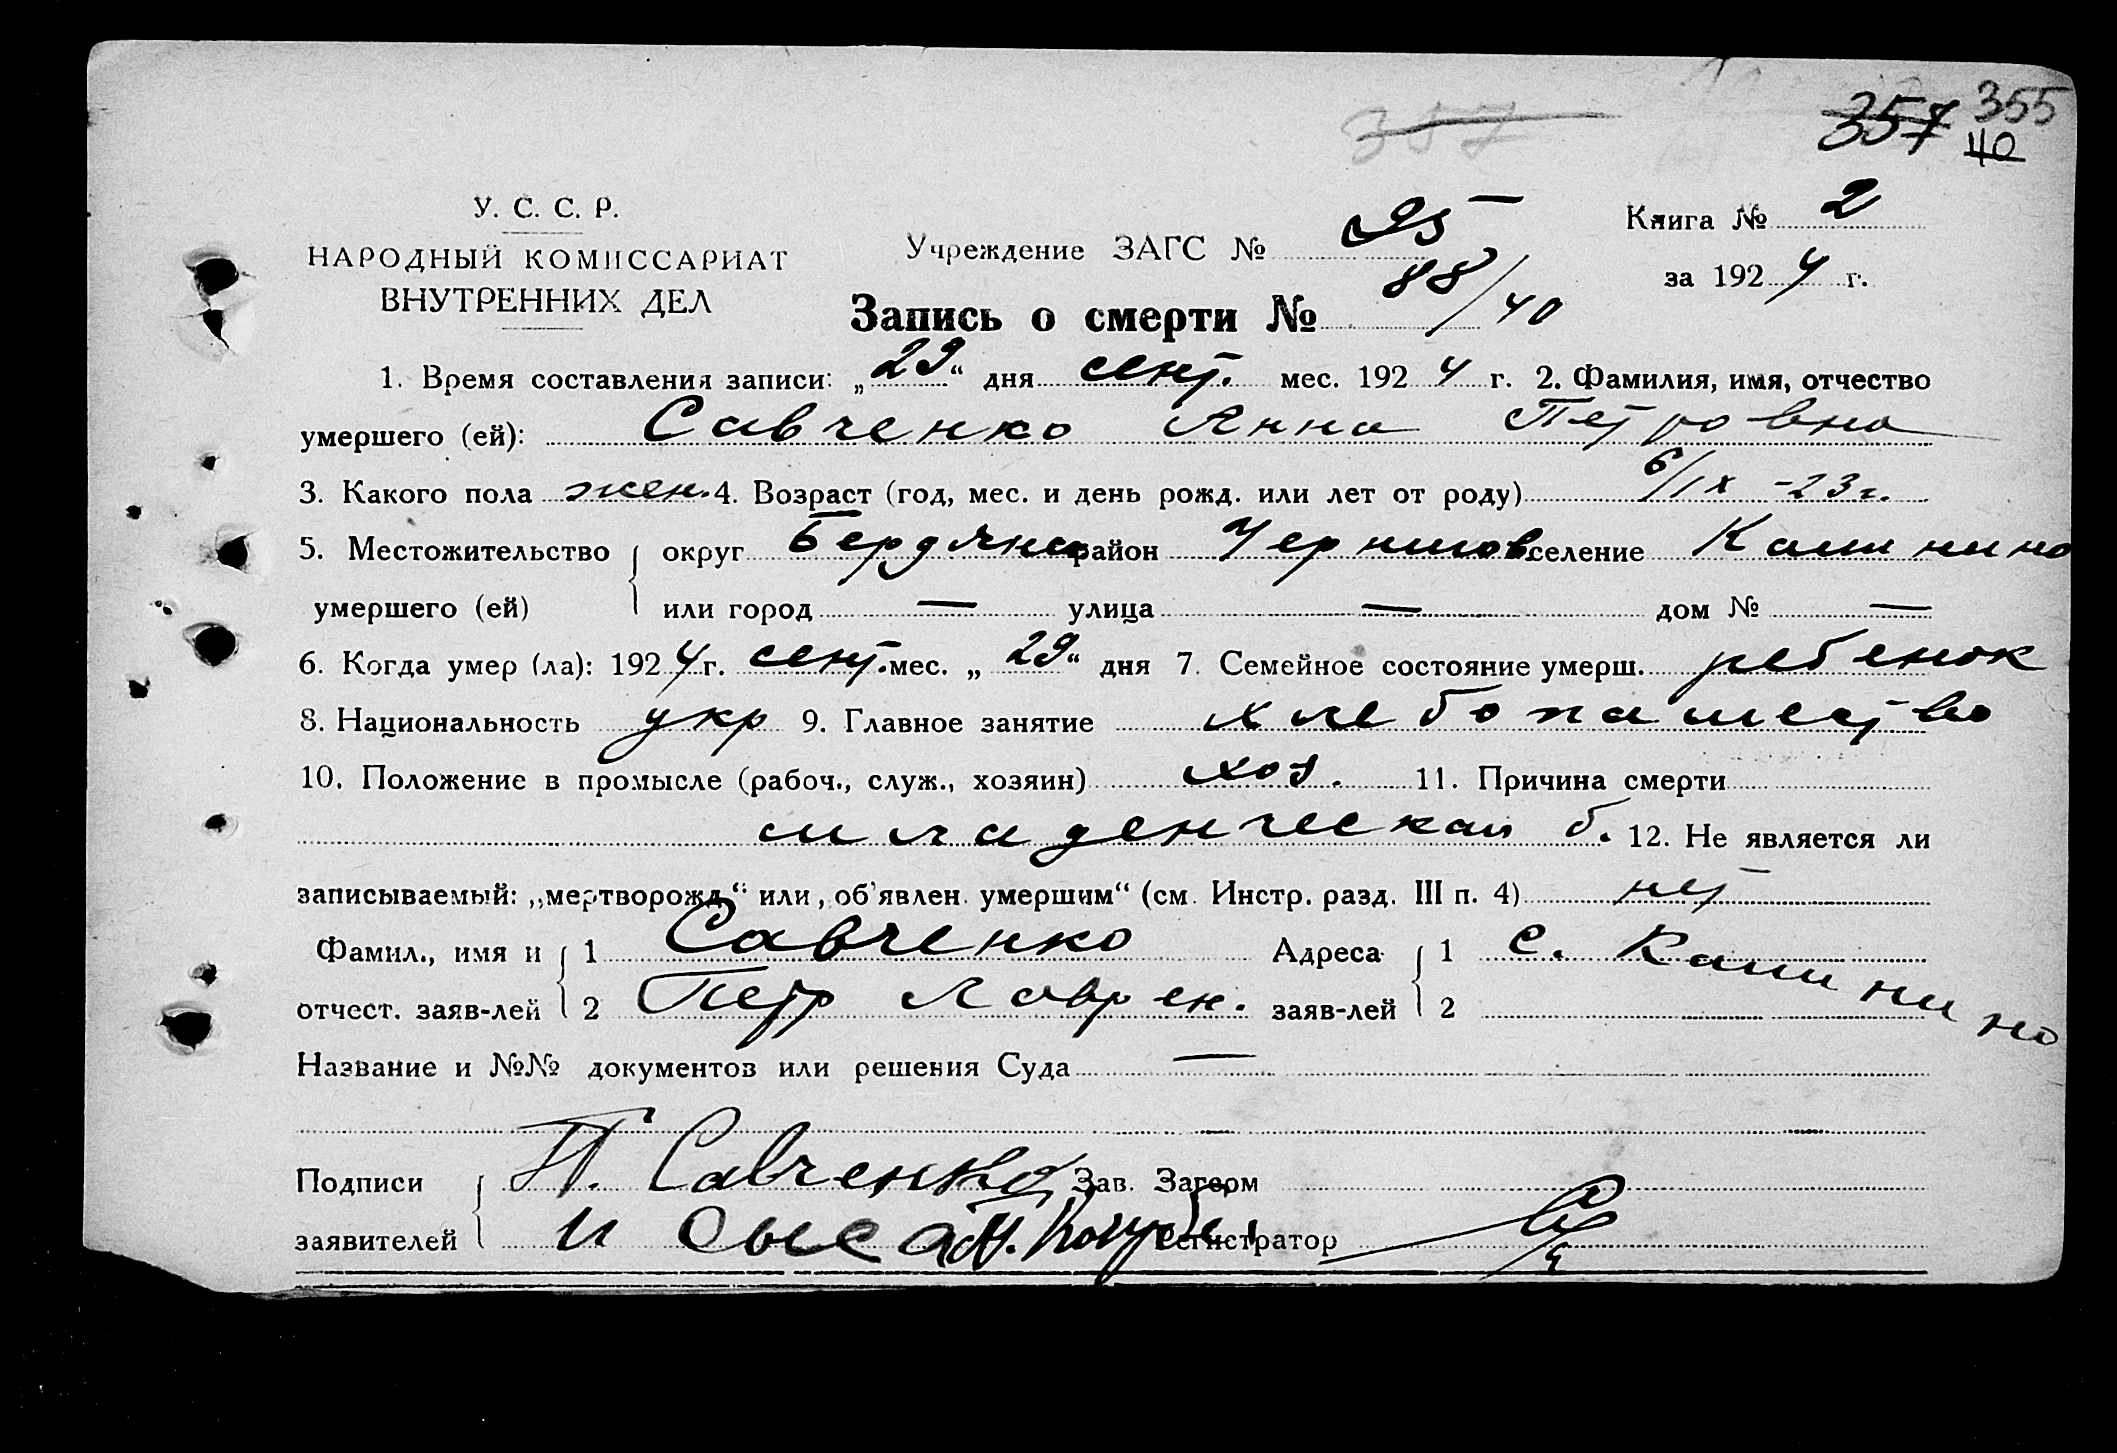 357 357 355
40
У. С. С. Р.
НАРОДНЫЙ КОМИССАРИАТ
ВНУТРЕННИХ ДЕЛ
Учреждение ЗАГС № 95
Книга № 2
за 1924 г.
Запись о смерти № 88/40
1. Время составления записи: „29“ дня сент. мес. 1924 г. 2. Фамилия, имя, отчество
умершего (ей): Савченко Анна Петровна
3. Какого пола жен. 4. Возраст (год, мес. и день рожд. или лет от роду) 6/IX -23 г.
5. Местожительство округ Бердянск район Черниговс селение Калинино
умершего (ей) или город — улица — дом № —
6. Когда умер (ла): 1924 г. сент. мес. „29“ дня 7. Семейное состояние умерш. ребенок
8. Национальность укр 9. Главное занятие хлебопашество
10. Положение в промысле (рабоч., служ., хозяин) хоз. 11. Причина смерти
младенческая б. 12. Не является ли
записываемый: „мертворожд.“ или „об'явлен. умершим“ (см. Инстр. разд. III п. 4) нет
Фамил., имя и 1 Савченко Адреса 1 с. Калинино
отчест. заяв-лей 2 Петр Лаврен. заяв-лей 2
Название и №№ документов или решения Суда —
Подписи П. Савченко Зав. Загсом
заявителей Регистратор